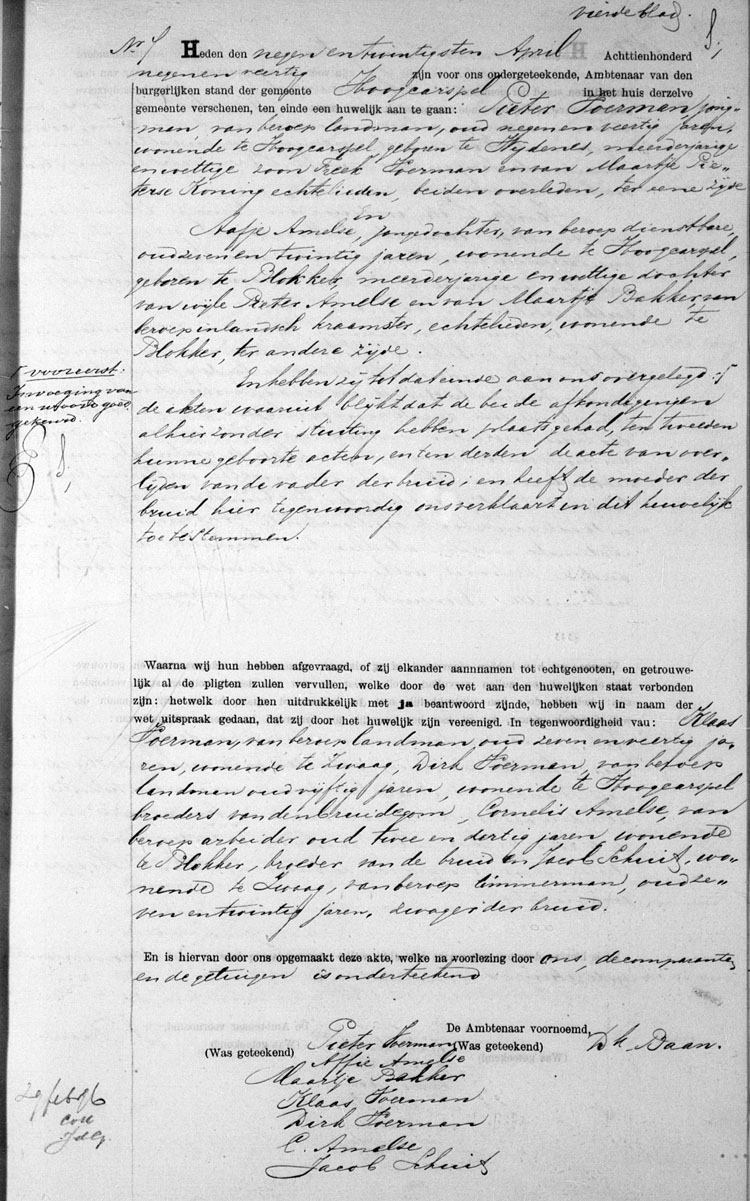 vierde blad.
No 7 Heden den negen en twintigsten April Achttienhonderd
negen en veertig zijn voor ons ondergeteekende, Ambtenaar van den
burgerlijken stand der gemeente Hoogcarspel in het huis derzelve
gemeente verschenen, ten einde een huwelijk aan te gaan: Pieter Voerman, jong-
man, van beroep landman, oud negen en veertig jaren,
wonende te Hoogcarspel, geboren te Wydenes, meerderjarige
en wettige zoon Freek Voerman en van Maartje Pie-
terse Koning echtelieden, beiden overleden, ter eene zijde
En
Aafje Amelse, jongedochter, van beroep dienstbare,
oud zeven en twintig jaren, wonende te Hoogcarspel,
geboren te Blokker, meerderjarige en wettige dochter
van wijle Pieter Amelse en van Maartje Bakker, van
beroep inlandsch kraamster, echtelieden, wonende te
Blokker, ter andere zijde.
En hebben zij tot dat einde aan ons overgelegd:
de akten waaruit blijkt dat de beide afkondigingen
alhier zonder stuiting hebben plaats gehad, ten tweeden
hunne geboorte acten, en ten derden de acte van over-
lijden van de vader der bruid; en heeft de moeder der
bruid hier tegenwoordig ons verklaart in dit huwelijk
toe te stemmen.
voor eerst.
Invoeging van
een woord goed
gekeurd.
Waarna wij hun hebben afgevraagd, of zij elkander aannnamen tot echtgenooten, en getrouwe-
lijk al de pligten zullen vervullen, welke door de wet aan den huwelijken staat verbonden
zijn: hetwelk door hen uitdrukkelijk met ja beantwoord zijnde, hebben wij in naam der
wet uitspraak gedaan, dat zij door het huwelijk zijn vereenigd. In tegenwoordigheid vau: Klaas
Voerman, van beroep landman, oud zeven en veertig ja-
ren, wonende te Zwaag, Dirk Voerman, van beroep
landman oud vijftig jaren, wonende te Hoogcarspel
broeders van den bruidegom, Cornelis Amelse, van
beroep arbeider oud twee en dertig jaren, wonende
te Blokker, broeder van de bruid en Jacob Schuit, wo-
nende te Zwaag, van beroep timmerman, oud ze-
ven en twintig jaren, zwager der bruid.
En is hiervan door ons opgemaakt deze akte, welke na voorlezing door ons, de comparanten
en de getuigen is onderteekend
De Ambtenaar voornoemd,
(Was geteekend) Pieter Voerman (Was geteekend) Dk Baan.
Affie Amelse
Maartje Bakker
Klaas Voerman
Dirk Voerman
C. Amelse
Jacob Schuit
29 feb 96